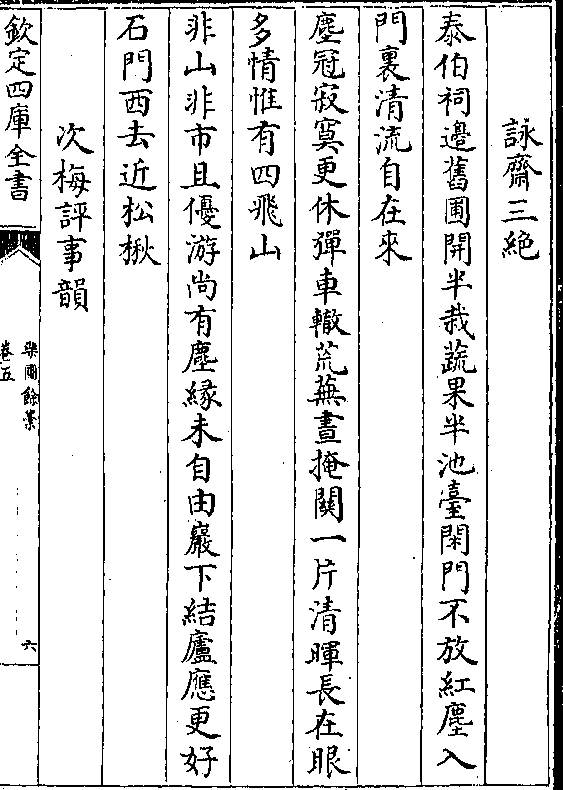 詠齋三絶
泰伯祠邊舊圃開半栽蔬果半池臺閑門不放紅塵入
門裏清流自在來
塵冠寂寞更休彈車轍荒蕪晝掩關一片清暉長在眼
多情惟有四飛山
非山非市且優游尚有塵緣未自由巖下結廬應更好
石門西去近松楸
次梅評事韻
欽定四庫全書
樂圃餘藁
卷五
六